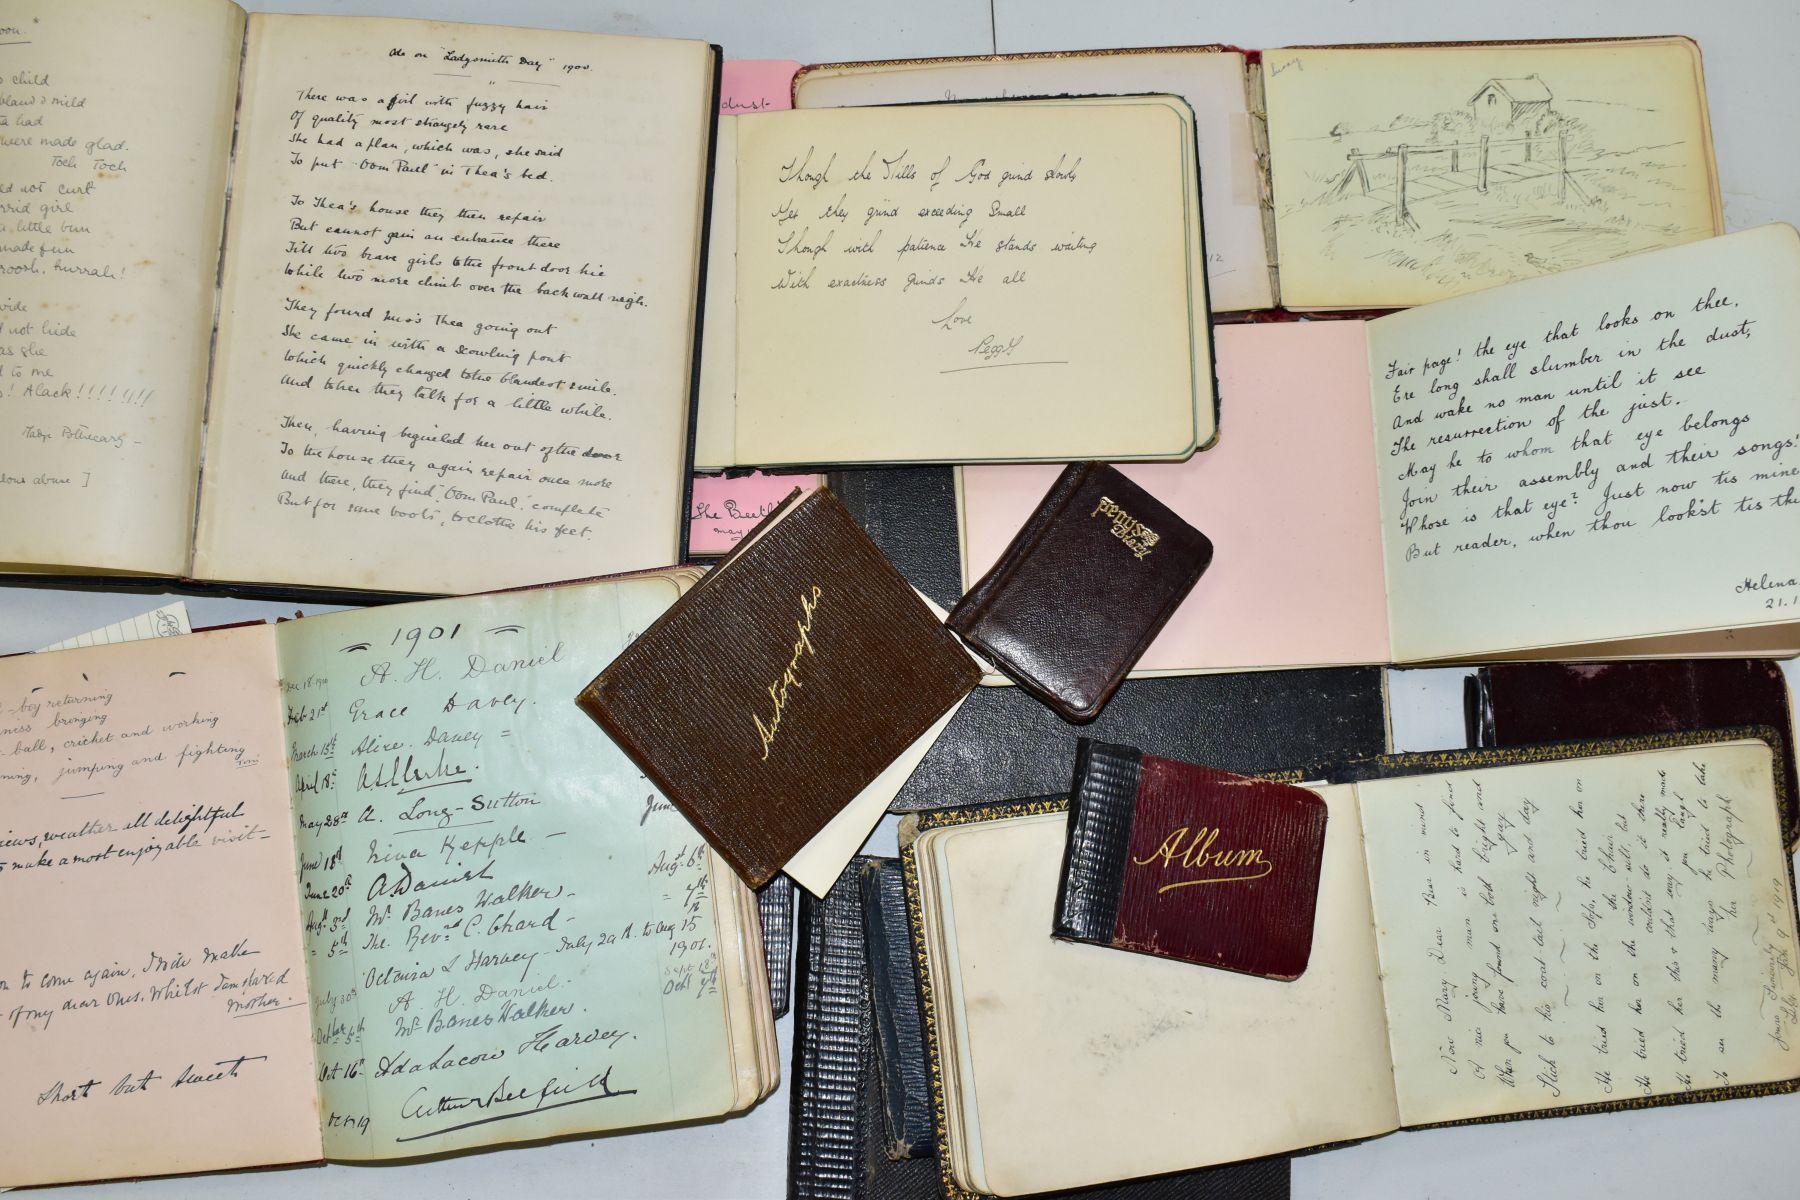 child
bland & mild
had
were made glad.
Toch Toch
not curt
girl
little bun
made fun
hurrah!
not hide
as she
to me
! Alack!!!!!!!!
abuse]
Ode on "Ladysmith Day" 1900.
There was a girl with fuzzy hair
Of quality most strangely rare
She had a plan, which was, she said
To put "Oom Paul" in Thea's bed.
To Thea's house they then repair
But cannot gain an entrance there
Till two brave girls to the front door hie
While two more climb over the back wall nigh.
They found Miss Thea going out
She came in with a scowling pout
Which quickly changed to the blandest smile.
And then they talk for a little while.
Then, having beguiled her out of the door
To the house they again repair once more
And there, they find "Oom Paul" complete
But for some boots, to clothe his feet.
dust-
Though the Mills of God grind slowly
Yet they grind exceeding Small
Though with patience He stands waiting
With exactness grinds He all
Love
Peggy
12
The
May
Fair page! the eye that looks on thee,
Ere long shall slumber in the dust,
And wake no man until it see
The resurrection of the just.
May he to whom that eye belongs
Join their assembly and their songs!
Whose is that eye? Just now tis mine
But reader, when thou look'st tis thi
Helena
21.1
Autographs
Diary
Album
boy returning
bringing
ball, cricket and working
jumping and fighting
views, weather all delightful
make a most enjoyable visit-
to come again, I will make
of my dear ones. Whilst I am spared
Mother.
Short but sweet
1901
Dec 18. 1900 A. H. Daniel
Feb 21st Grace Davey.
March 15th Alice. Davey =
April 18th
May 28th A. Long-Sutton
June 18th Nina Kepple -
June 20th A Daniel
Augst 3rd Mr Banes Walker - Augst 6th
" 5th The. Revnd C. Chard - " 7th
July 30th Octavia L Harvey - July 29th. to Aug 15
1901.
A. H. Daniel - Sept 18th
Octber 5th Mr Banes Walker. Oct 7th
Oct 16th Ada Lacon Harvey.
Oct 19
June
Now Mary Dear Bear in mind
A nice young man is hard to find
When you have found one both bright and gay
Stick to his coat tail night and day
He tried her on the Sofa, he tried her on
the Chair
He tried her on the window sill, but
couldn't do it there
He tried her this & that way, it really made
you laugh
To see the many ways he tried to take
her Photograph
July 9th 1919